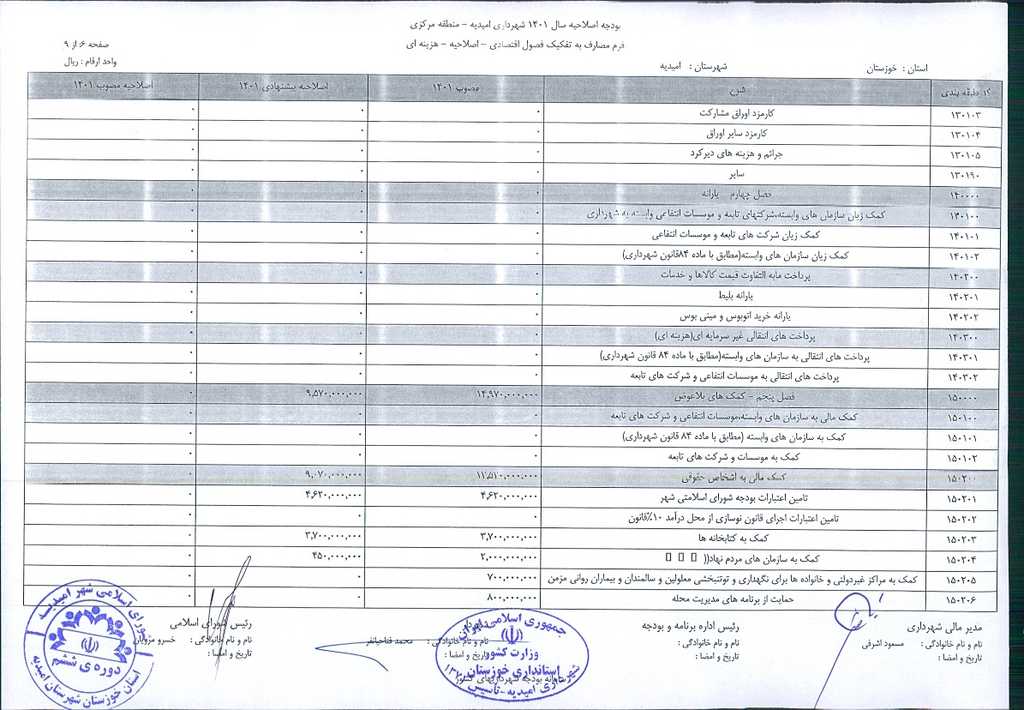 بودجه اصلاحیه سال ۱۴۰۱ شهرداری امیدیه - منطقه مرکزی
فرم مصارف به تفکیک فصول اقتصادی - اصلاحیه - هزینه ای
صفحه ۶ از ۹
واحد ارقام : ریال
استان : خوزستان شهرستان : امیدیه
کد طبقه بندی شرح مصوب ۱۴۰۱ اصلاحیه پیشنهادی ۱۴۰۱ اصلاحیه مصوب ۱۴۰۱
۱۳۰۱۰۳ کارمزد اوراق مشارکت ۰ ۰ ۰
۱۳۰۱۰۴ کارمزد سایر اوراق ۰ ۰ ۰
۱۳۰۱۰۵ جرائم و هزینه های دیرکرد ۰ ۰ ۰
۱۳۰۱۹۰ سایر ۰ ۰ ۰
۱۴۰۰۰۰ فصل چهارم - یارانه ۰ ۰ ۰
۱۴۰۱۰۰ کمک زیان سازمان های وابسته،شرکتهای تابعه و موسسات انتفاعی وابسته به شهرداری ۰ ۰ ۰
۱۴۰۱۰۱ کمک زیان شرکت های تابعه و موسسات انتفاعی ۰ ۰ ۰
۱۴۰۱۰۲ کمک زیان سازمان های وابسته(مطابق با ماده ۸۴قانون شهرداری) ۰ ۰ ۰
۱۴۰۲۰۰ پرداخت مابه التفاوت قیمت کالاها و خدمات ۰ ۰ ۰
۱۴۰۲۰۱ یارانه بلیط ۰ ۰ ۰
۱۴۰۲۰۲ یارانه خرید اتوبوس و مینی بوس ۰ ۰ ۰
۱۴۰۳۰۰ پرداخت های انتقالی غیر سرمایه ای(هزینه ای) ۰ ۰ ۰
۱۴۰۳۰۱ پرداخت های انتقالی به سازمان های وابسته(مطابق با ماده ۸۴ قانون شهرداری) ۰ ۰ ۰
۱۴۰۳۰۲ پرداخت های انتقالی به موسسات انتفاعی و شرکت های تابعه ۰ ۰ ۰
۱۵۰۰۰۰ فصل پنجم - کمک های بلاعوض ۱۴,۹۷۰,۰۰۰,۰۰۰ ۹,۵۷۰,۰۰۰,۰۰۰ ۰
۱۵۰۱۰۰ کمک مالی به سازمان های وابسته،موسسات انتفاعی و شرکت های تابعه ۰ ۰ ۰
۱۵۰۱۰۱ کمک به سازمان های وابسته (مطابق با ماده ۸۴ قانون شهرداری) ۰ ۰ ۰
۱۵۰۱۰۲ کمک به موسسات و شرکت های تابعه ۰ ۰ ۰
۱۵۰۲۰۰ کمک مالی به اشخاص حقوقی ۱۱,۵۱۰,۰۰۰,۰۰۰ ۹,۰۷۰,۰۰۰,۰۰۰ ۰
۱۵۰۲۰۱ تامین اعتبارات بودجه شورای اسلامتی شهر ۴,۶۲۰,۰۰۰,۰۰۰ ۴,۶۲۰,۰۰۰,۰۰۰ ۰
۱۵۰۲۰۲ تامین اعتبارات اجرای قانون نوسازی از محل درآمد ۱۰٪قانون ۰ ۰ ۰
۱۵۰۲۰۳ کمک به کتابخانه ها ۳,۷۰۰,۰۰۰,۰۰۰ ۳,۷۰۰,۰۰۰,۰۰۰ ۰
۱۵۰۲۰۴ کمک به سازمان های مردم نهاد(( ۲,۰۰۰,۰۰۰,۰۰۰ ۴۵۰,۰۰۰,۰۰۰ ۰
۱۵۰۲۰۵ کمک به مراکز غیردولتی و خانواده ها برای نگهداری و توتنبخشی معلولین و سالمندان و بیماران روانی مزمن ۷۰۰,۰۰۰,۰۰۰ ۰ ۰
۱۵۰۲۰۶ حمایت از برنامه های مدیریت محله ۸۰۰,۰۰۰,۰۰۰ ۰ ۰
مدیر مالی شهرداری رئیس اداره برنامه و بودجه شهردار رئیس شورای اسلامی
نام و نام خانوادگی : مسعود اشرفی نام و نام خانوادگی : نام و نام خانوادگی : محمد فتاحیانفر نام و نام خانوادگی : خسرو
تاریخ و امضا : تاریخ و امضا : تاریخ و امضا : تاریخ و امضا :
سامانه بودجه شهرداریهای کشور
جمهوری اسلامی ایران
وزارت کشور
استانداری خوزستان
شهرداری امیدیه-تأسیس
شورای اسلامی شهر امیدیه
دوره ی ششم
استان خوزستان شهرستان امیدیه